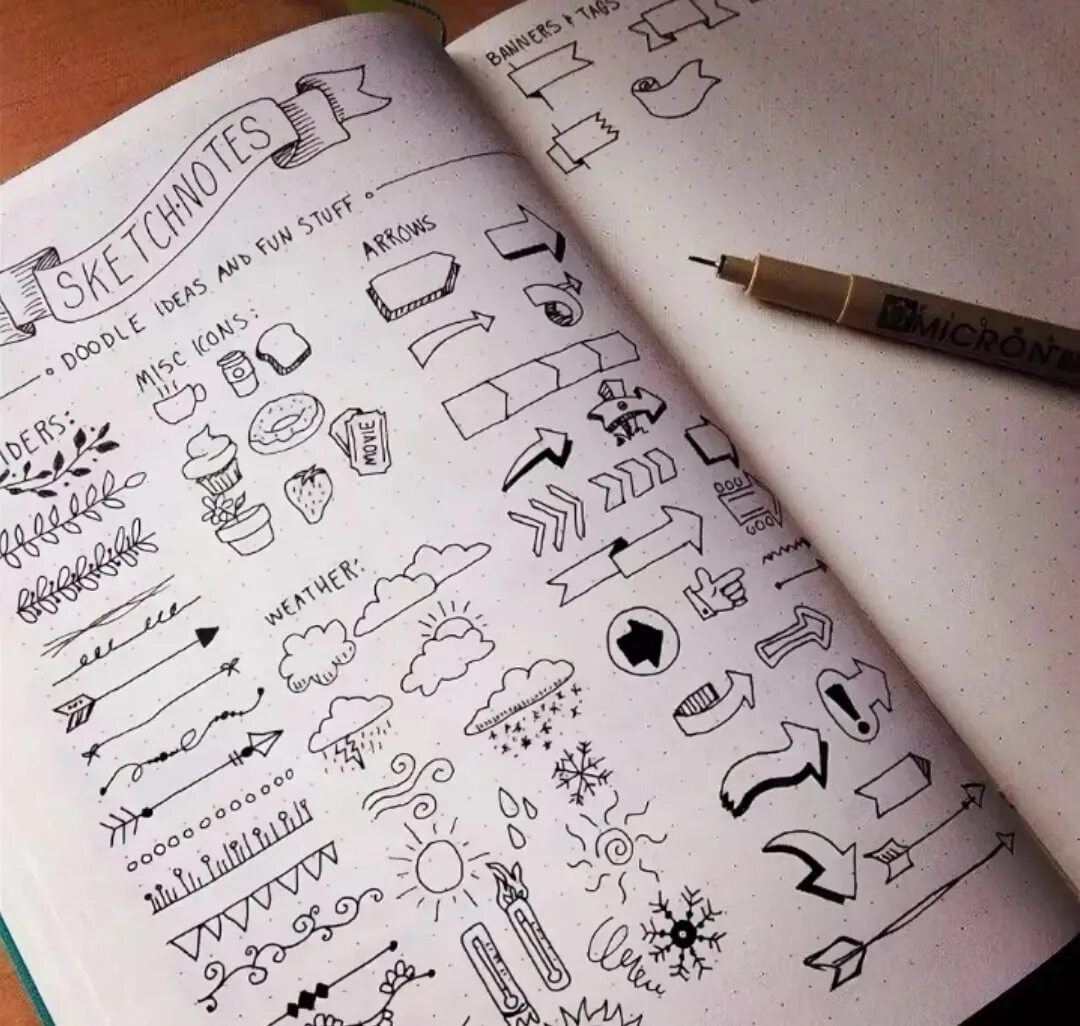 SKETCH·NOTES
DOODLE IDEAS AND FUN STUFF
IDERS:
MISC ICONS:
MOVIE
WEATHER:
ARROWS
!
BANNERS & TAGS
MICRON